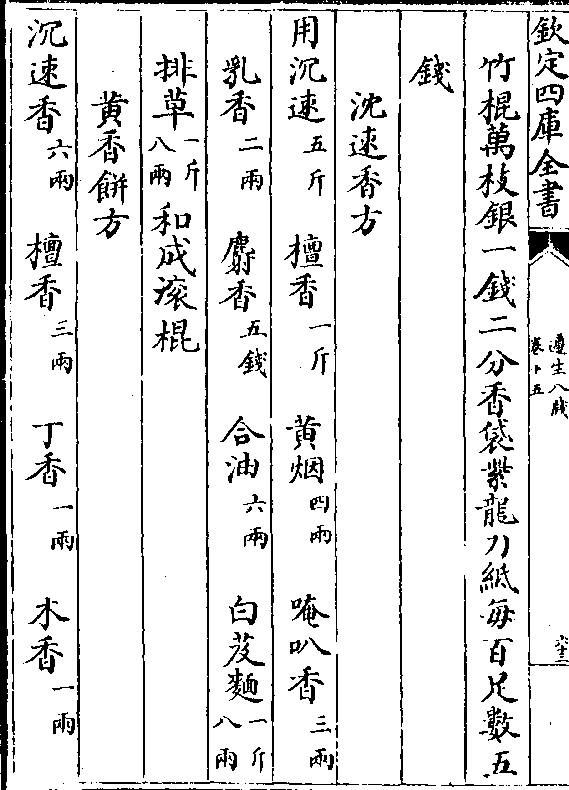 欽定四庫全書
遵生八牋
卷十五
竹棍萬枝銀一錢二分香袋紫龍刀紙每百足數五
錢
沈速香方
用沉速五斤 檀香一斤 黄烟四兩 唵叭香三兩
乳香二兩 麝香五錢 合油六兩 白芨麵一斤八兩
排草一斤八兩 和成滚棍
黄香餅方
沉速香六兩 檀香三兩 丁香一兩 木香一兩